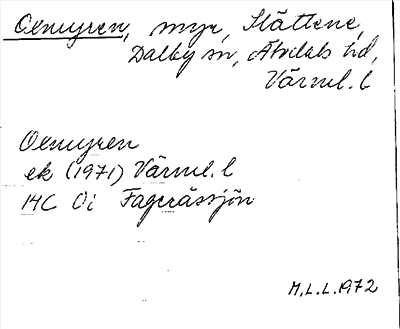 Oemyren, myr, Slättene,
Dalby sn, Älvdals hd,
Värml. l
Oemyren
ek (1971) Värml. l
14C 0i Fageråssjön
M.L.L. 1972